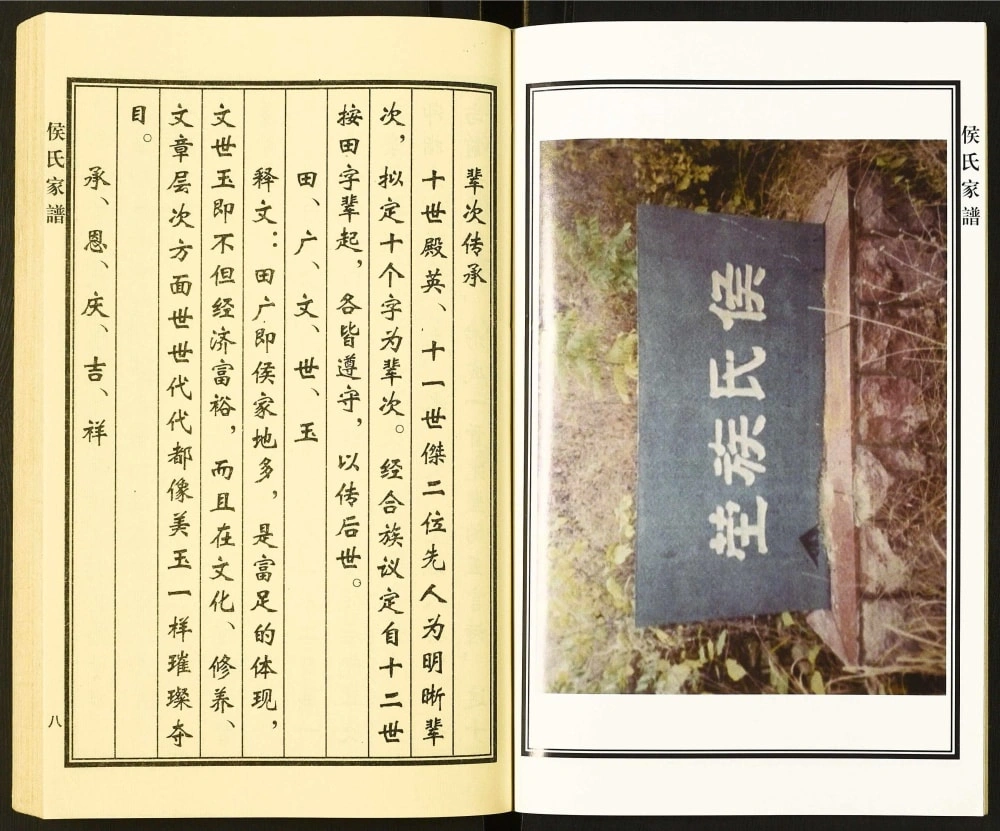 侯氏家譜
侯氏族茔
辈次传承
十世殿英、十一世傑二位先人为明晰辈
次，拟定十个字为辈次。经合族议定自十二世
按田字辈起，各皆遵守，以传后世。
田、广、文、世、玉
释文：田广即侯家地多，是富足的体现，
文世玉即不但经济富裕，而且在文化、修养、
文章层次方面世世代代都像美玉一样璀璨夺
目。
承、恩、庆、吉、祥
侯氏家譜
八